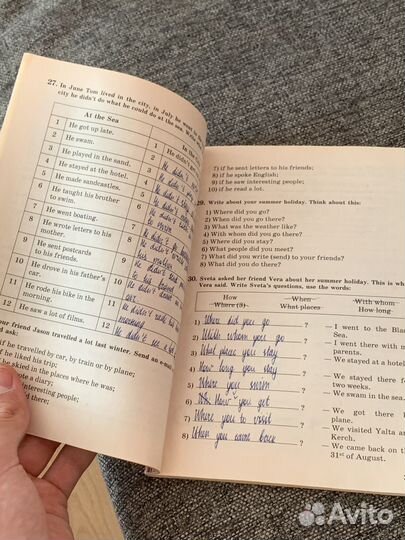 27. In June Tom lived in the city, in July he went to the
city he didn't do what he could do at the sea.
At the Sea
In the
1 He got up late.
1 He didn't
2 He swam.
2 He didn't
3 He played in the sand.
3 He didn't
4 He stayed at the hotel.
4 He didn't
5 He made sandcastles.
5 He didn't
6 He taught his brother
to swim.
6 He didn't
7 He went boating.
7 He didn't
8 He wrote letters to his
mother.
8 He didn't
9 He sent postcards
to his friends.
9 He didn't
to his friend
10 He drove in his father's
car.
10 He didn't
11 He rode his bike in the
morning.
11 He didn't
morning
12 He saw a lot of films.
12 He didn't see
your friend Jason travelled a lot last winter. Send an e-m
d ask:
if he travelled by car, by train or by plane;
if he liked his trip;
he skied in the places where he was;
ote a diary;
interesting people;
d there;
7) if he sent letters to his friends;
8) if he spoke English;
9) if he saw interesting people;
10) if he read a lot.
29. Write about your summer holiday. Think about this:
1) Where did you go?
2) When did you go there?
3) What was the weather like?
4) With whom did you go there?
5) Where did you stay?
6) What people did you meet?
7) What did you write (send) to your friends?
8) What did you do there?
30. Sveta asked her friend Vera about her summer holiday. This is wha
Vera said. Write Sveta's questions, use the words:
How When With whom
Where (3) What places How long
1) Where did you go ? — I went to the Blac
Sea.
2) With whom you go ? — I went there with m
parents.
3) What place you stay ? — We stayed at a hotel
4) How long you stay ? — We stayed there fo
two weeks.
5) Where you swim ? — We swam in the sea.
6) How you get ? — We got there b
plane.
7) Where you to visit ? — We visited Yalta an
Kerch.
8) When you came back ? — We came back on th
31st of August.
Avito